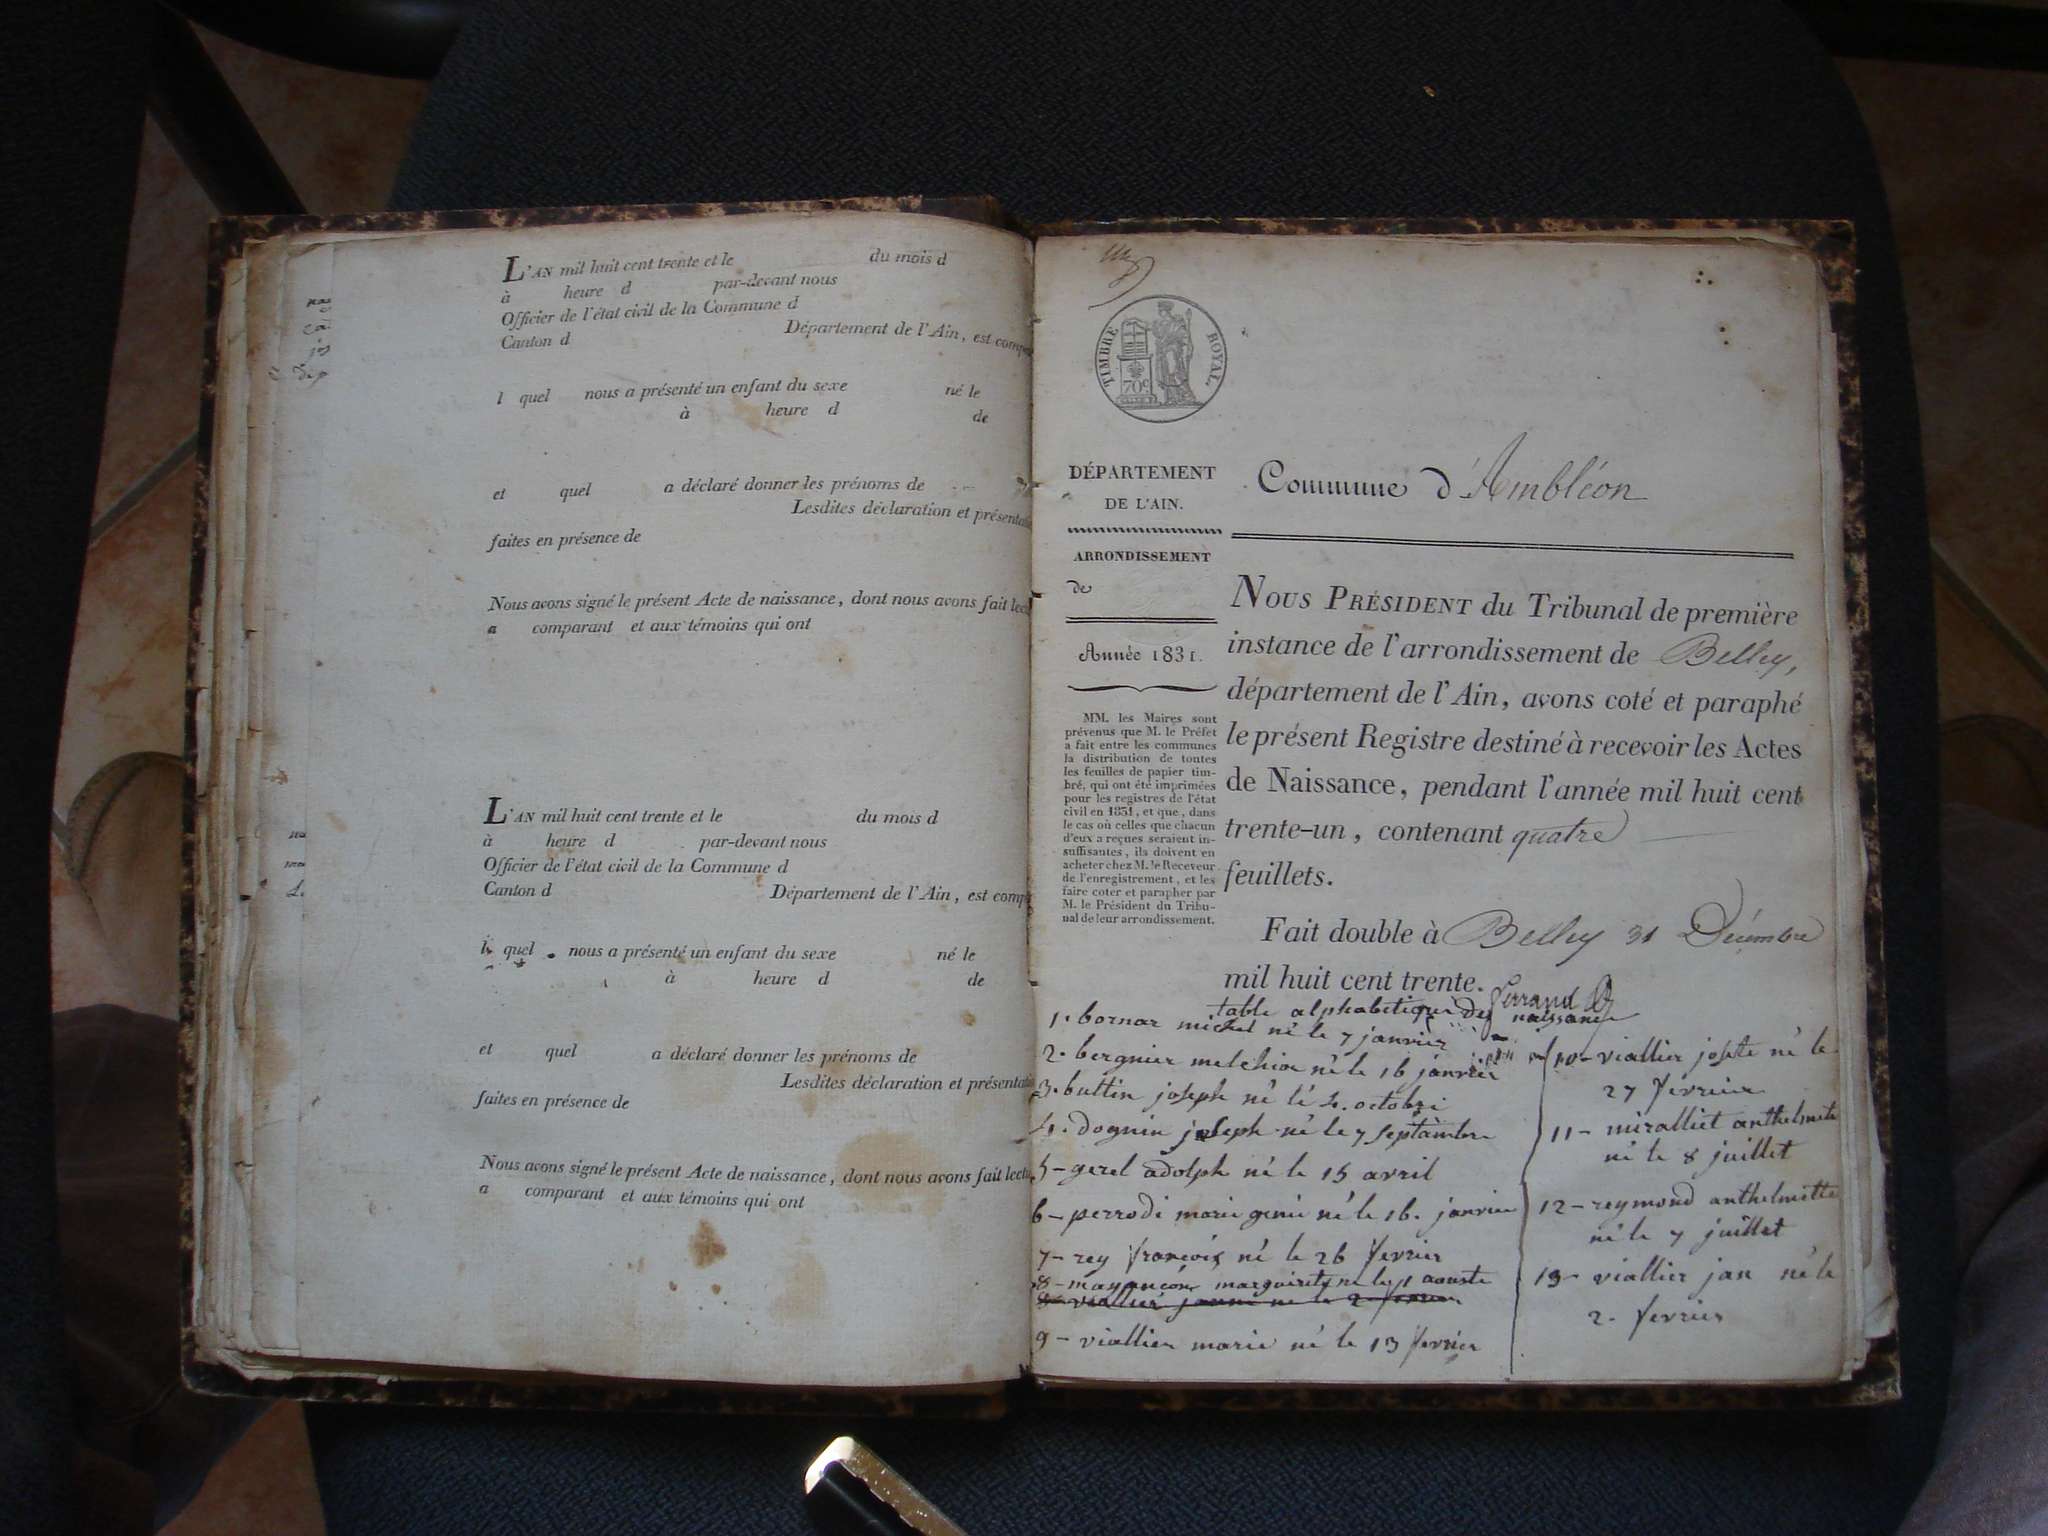 L'AN mil huit cent trente et le du mois d
à heure d par-devant nous
Officier de l'état civil de la Commune d
Canton d Département de l'Ain, est comp
l quel nous a présenté un enfant du sexe né le
à heure d de
et quel a déclaré donner les prénoms de
Lesdites déclaration et présentat
faites en présence de
Nous avons signé le présent Acte de naissance, dont nous avons fait lec
a comparant et aux témoins qui ont
L'AN mil huit cent trente et le du mois d
à heure d par-devant nous
Officier de l'état civil de la Commune d
Canton d Département de l'Ain, est comp
l quel nous a présenté un enfant du sexe né le
à heure d de
et quel a déclaré donner les prénoms de
Lesdites déclaration et présentati
faites en présence de
Nous avons signé le présent Acte de naissance, dont nous avons fait lectu
a comparant et aux témoins qui ont
TIMBRE ROYAL.
70c
DÉPARTEMENT
DE L'AIN.
Commune d'Ambléon
ARRONDISSEMENT
de
Année 1831.
MM. les Maires sont
prévenus que M. le Préfet
a fait entre les communes
la distribution de toutes
les feuilles de papier tim-
bré, qui ont été imprimées
pour les registres de l'état
civil en 1831, et que, dans
le cas où celles que chacun
d'eux a reçues seraient in-
suffisantes, ils doivent en
acheter chez M. le Receveur
de l'enregistrement, et les
faire coter et parapher par
M. le Président du Tribu-
nal de leur arrondissement.
NOUS PRÉSIDENT du Tribunal de première
instance de l'arrondissement de Belley,
département de l'Ain, avons coté et paraphé
le présent Registre destiné à recevoir les Actes
de Naissance, pendant l'année mil huit cent
trente-un, contenant quatre
feuillets.
Fait double à Belley 31 Décembre
mil huit cent trente.
Ferrand
table alphabetique des naissance
1. bornar michel né le 7 janvier
2. bergnier melchior né le 16 janvier
3. buttin joseph né lé 4. octobre
4. dognin joseph né le 7 septambre
5 - gerel adolph né le 15 avril
6 - perrodi marie genie né le 16. janvier
7 - rey françois né le 26 fevrier
8 - mayançon marguirite né le 1 aouste
9 - viallier marie né le 13 fevrier
10 - viallier josette né le
27 fevrier
11 - miralliet anthelmete
né le 8 juillet
12 - reymond anthelmette
né le 7 juillet
13 - viallier jan né le
2. fevrier